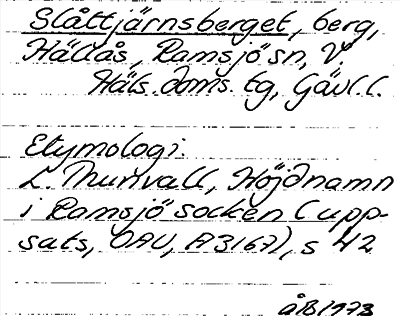 Slåttjärnsberget, berg,
Hällås, Ramsjö sn, V.
Häls. doms. tg, Gävl. l.
Etymologi:
L. Thunvall, Höjdnamn
i Ramsjö socken (upp-
sats, OAU, A3167), s 42
åB 1973